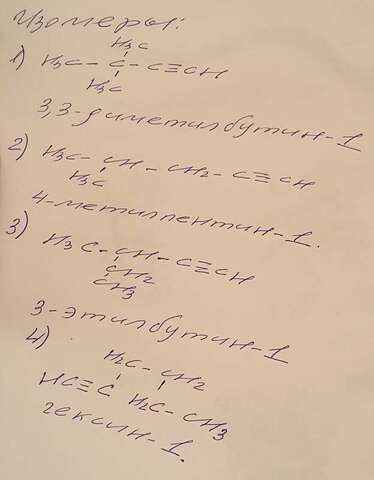 Изомеры:
H3C
1) H3C - C - C≡CH
H3C
3,3-диметилбутин-1
2) H3C - CH - CH2 - C≡CH
H3C
4-метилпентин-1.
3) H3C - CH - C≡CH
CH2
CH3
3-этилбутин-1
4)
H2C - CH2
HC≡C H2C - CH3
гексин-1.